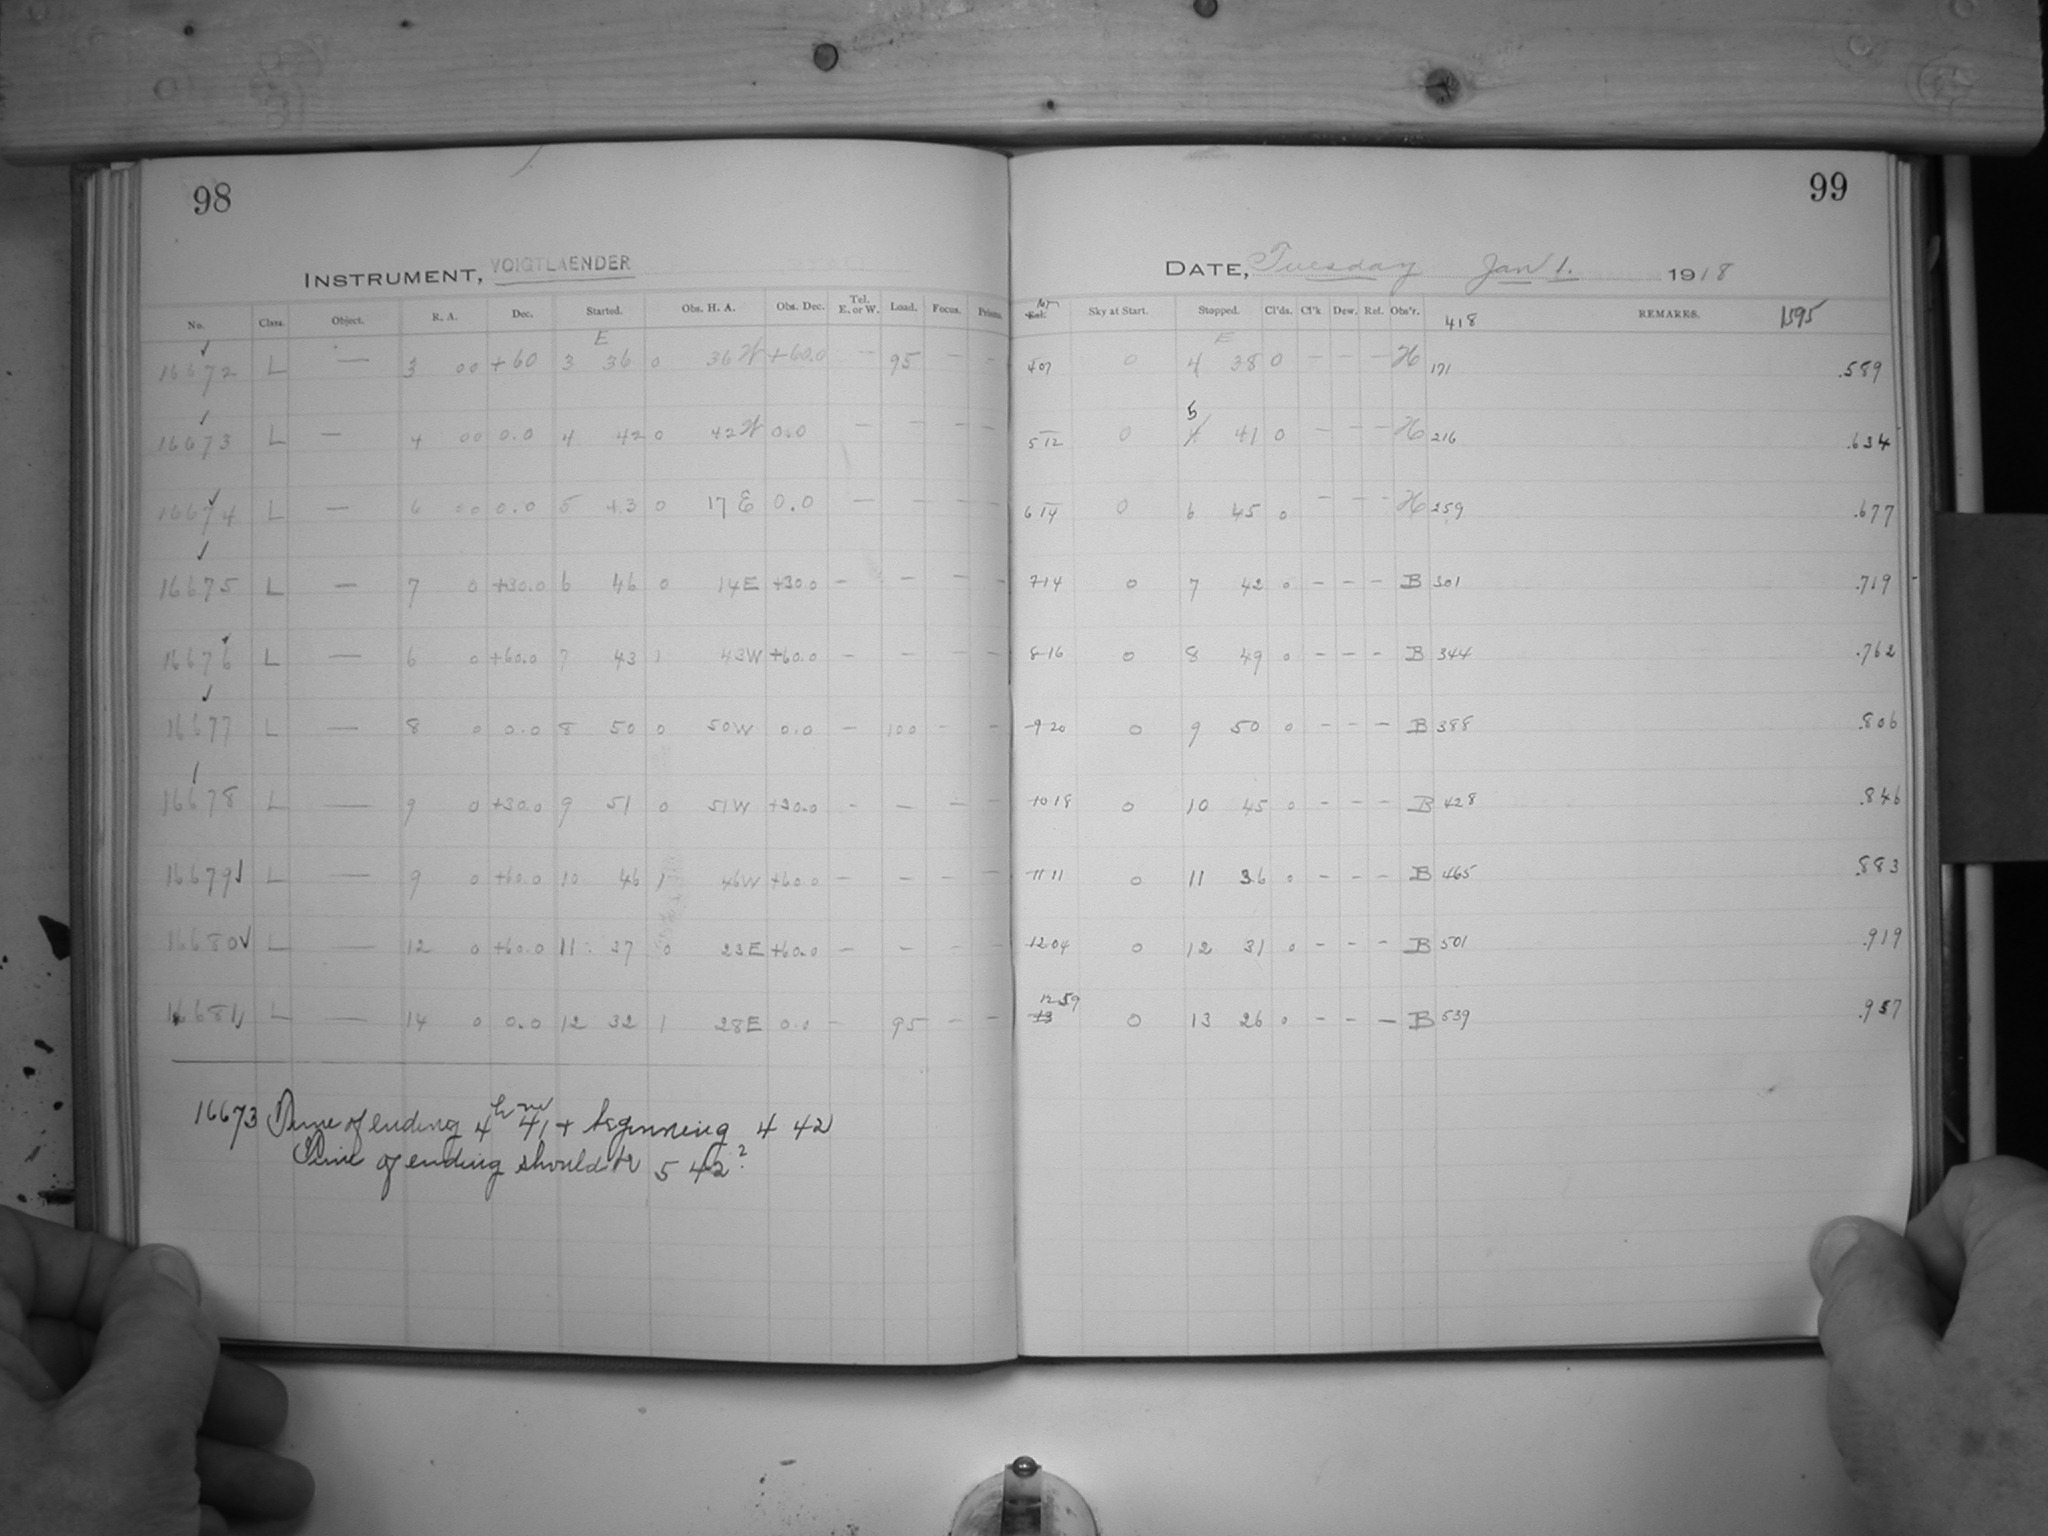 98
INSTRUMENT, VOIGTLAENDER
No. Class. Object. R. A. Dec. Started. Obs. H. A. Obs. Dec. Tel. E. or W. Load. Focus. Prisms.
16672 L — 3 00 +60 3 E 36 0 36 W +60.0 — 95 — —
16673 L — 4 00 0.0 4 42 0 42 W 0.0 — — — —
16674 L — 6 00 0.0 5 43 0 17 E 0.0 — — — —
16675 L — 7 0 +30.0 6 46 0 14 E +30.0 — — — —
16676 L — 6 0 +60.0 7 43 1 43 W +60.0 — — — —
16677 L — 8 0 0.0 8 50 0 50 W 0.0 — 100 — —
16678 L — 9 0 +30.0 9 51 0 51 W +30.0 — — — —
16679 L — 9 0 +60.0 10 46 1 46 W +60.0 — — — —
16680 L — 12 0 +60.0 11 37 0 23 E +60.0 — — — —
16681 L — 14 0 0.0 12 32 1 28 E 0.0 — 95 — —
16673 Time of ending 4 h 41 m + beginning 4 42
Time of ending should be 5 42?
99
DATE, Tuesday Jan 1. 1918
Sky at Start. Stopped. Cl'ds. Cl'k Dew. Ref. Obs'r. 418 REMARKS. 1595
4 07 0 4 E 38 0 — — — H 171 .589
5 12 0 5 41 0 — — — H 216 .634
6 14 0 6 45 0 — — — H 259 .677
7 14 0 7 42 0 — — — B 301 .719
8 16 0 8 49 0 — — — B 344 .762
9 20 0 9 50 0 — — — B 388 .806
10 18 0 10 45 0 — — — B 428 .846
11 11 0 11 36 0 — — — B 465 .883
12 04 0 12 31 0 — — — B 501 .919
12 59 0 13 26 0 — — — B 539 .957